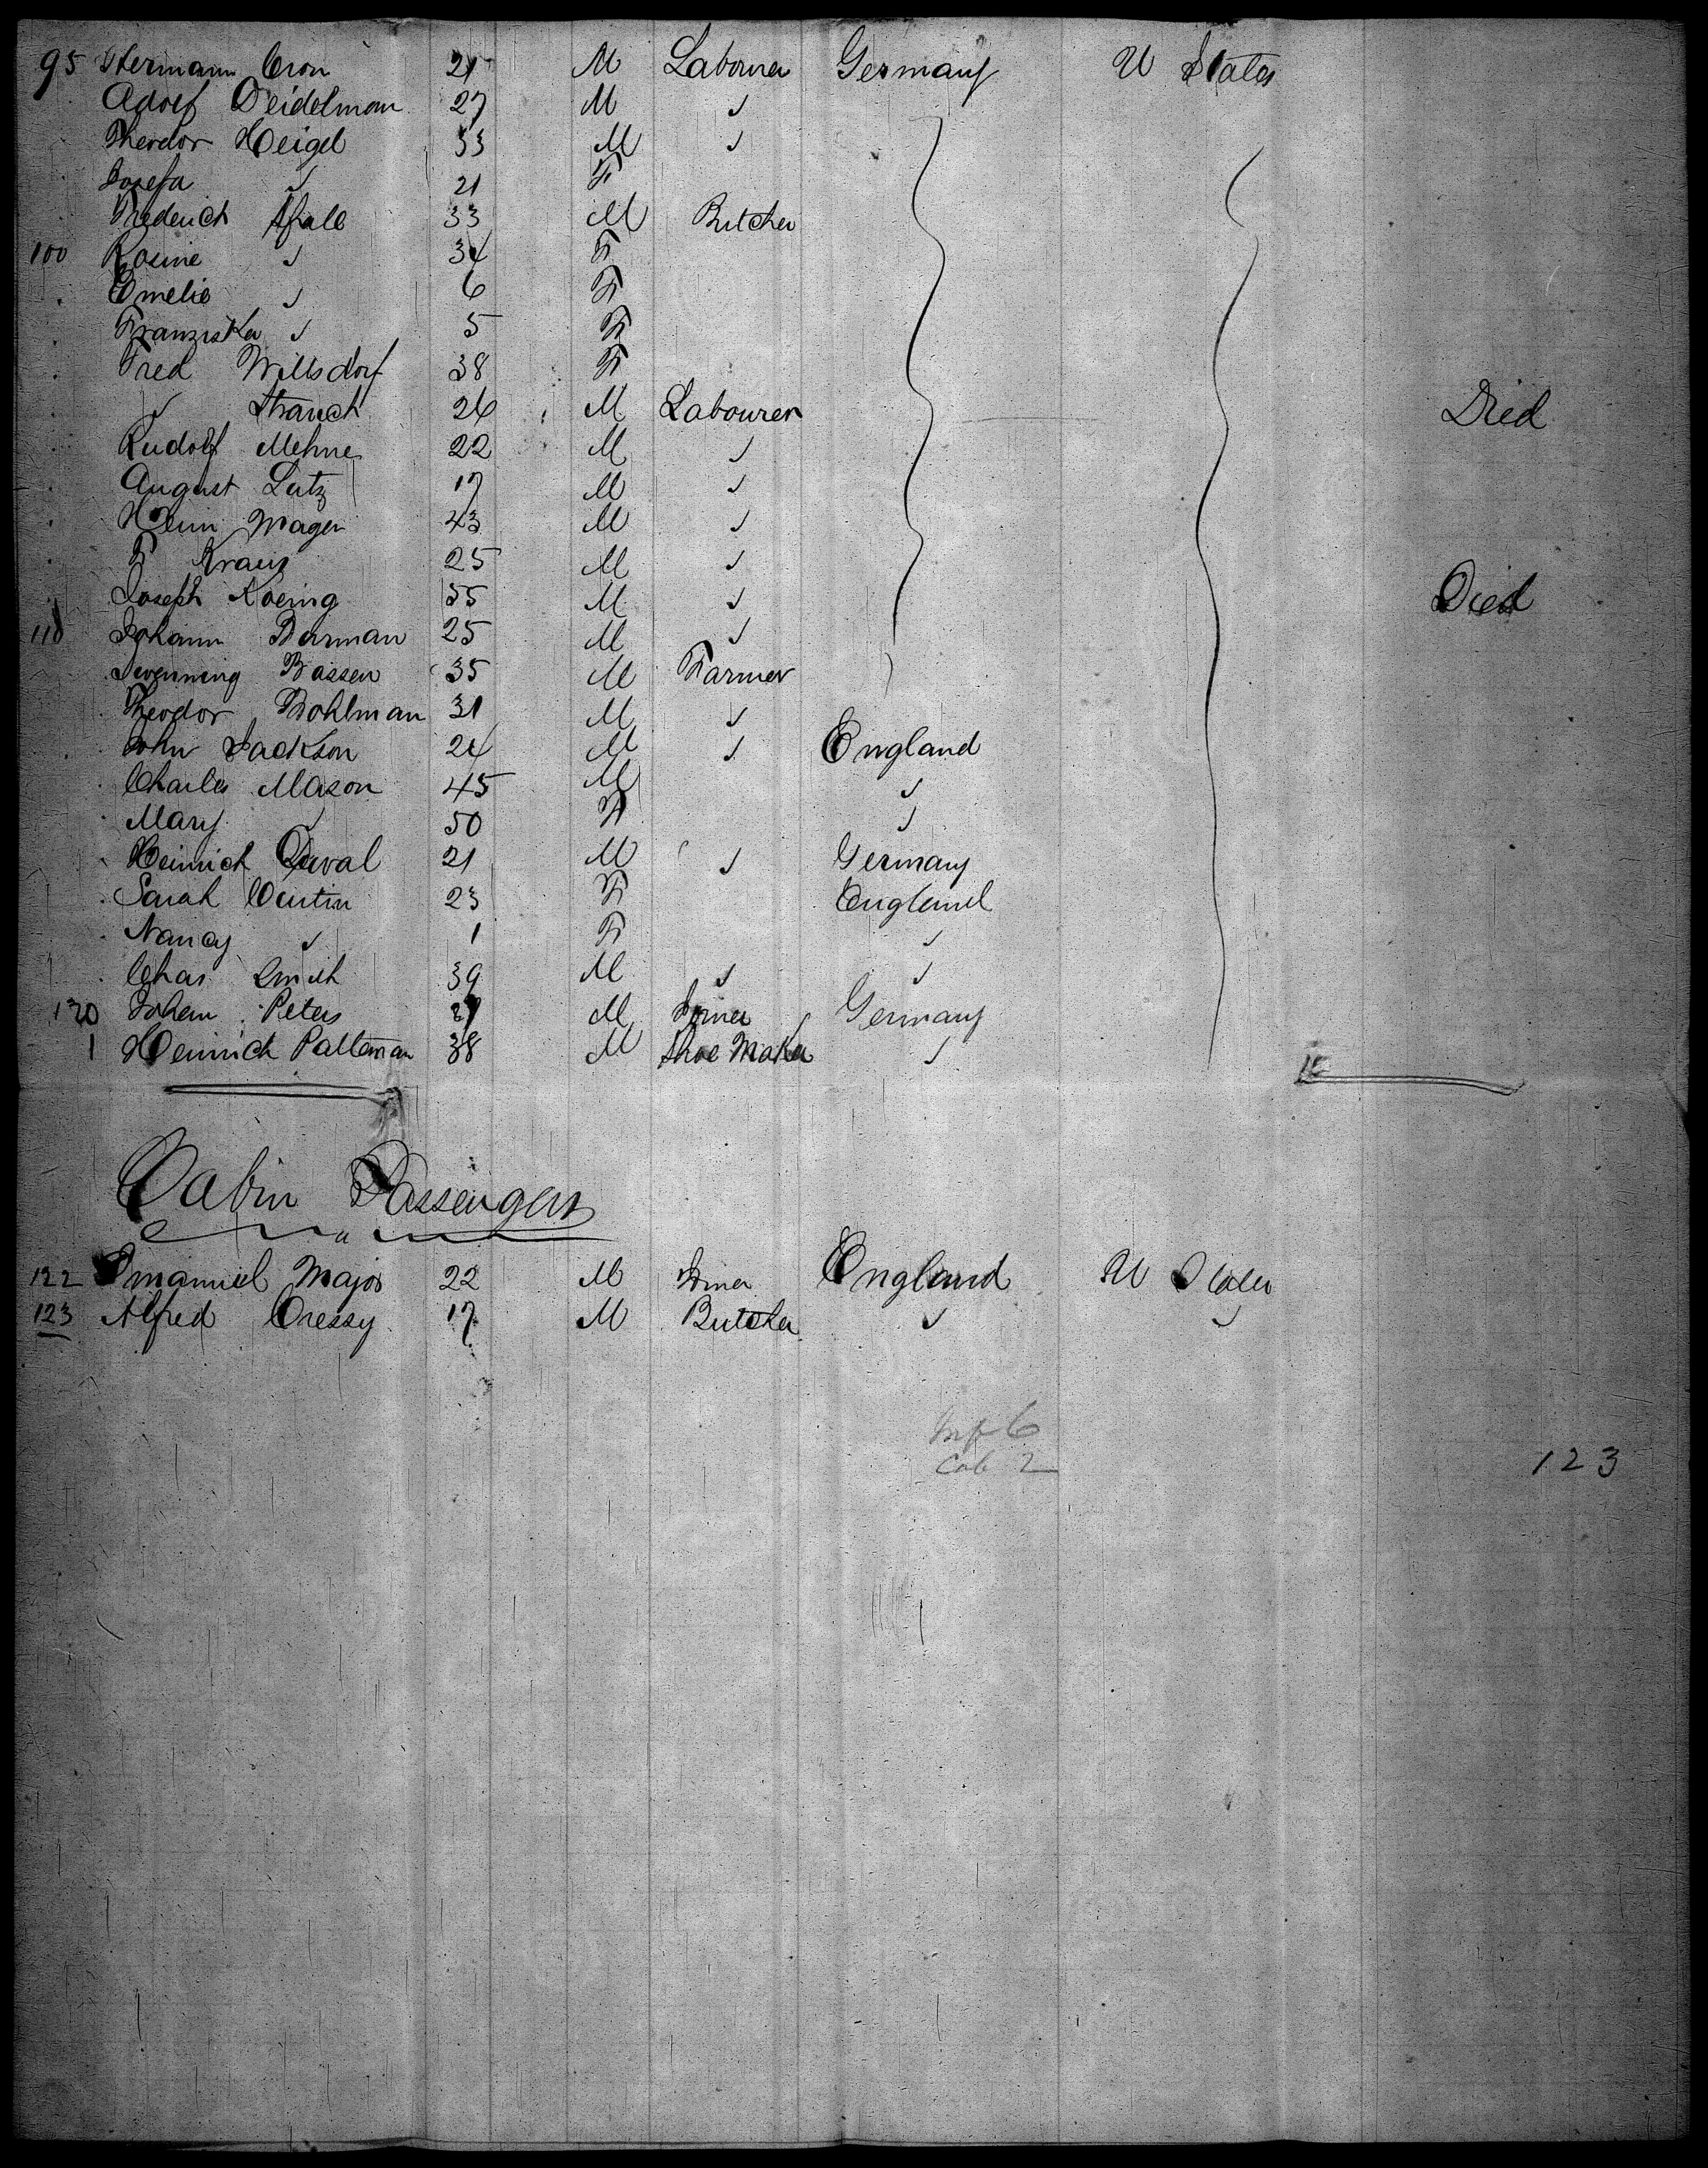 95 Hermann Cron 21 M Labourer Germany U States
Adolf Deidelman 27 M ✓
Theodor Heigel 33 M ✓
Josefa ✓ 21 F
Frederich 33 M Butcher
100 Rosine ✓ 34 F
Emelie ✓ 6 F
Franziska ✓ 5 F
Fred Willsdorf 38 F
✓ Strauch 26 M Labourer Died
Rudolf Mehne 22 M ✓
August Lutz 17 M ✓
Magen 43 M ✓
F Kraus 25 M ✓
Joseph Koenig 55 M ✓ Died
110 Johann Burman 25 M ✓
Bassen 35 M Farmer
Theodor Bohlman 31 M ✓
John Jackson 24 M ✓ England
Charles Mason 45 M ✓
Mary ✓ 50 F ✓
Heinrich Duval 21 M ✓ Germany
Sarah Curtin 23 F England
Nancy ✓ 1 F ✓
Chas Smith 39 M ✓ ✓
120 Johan Peters M Germany
1 Heinrich Palleman 38 M Shoe Maker ✓
Cabin Passengers
122 Emanuel Major 22 M England U States
123 Alfred Cressy 17 M Butcher ✓ ✓
Inf 6
Cab 2
123